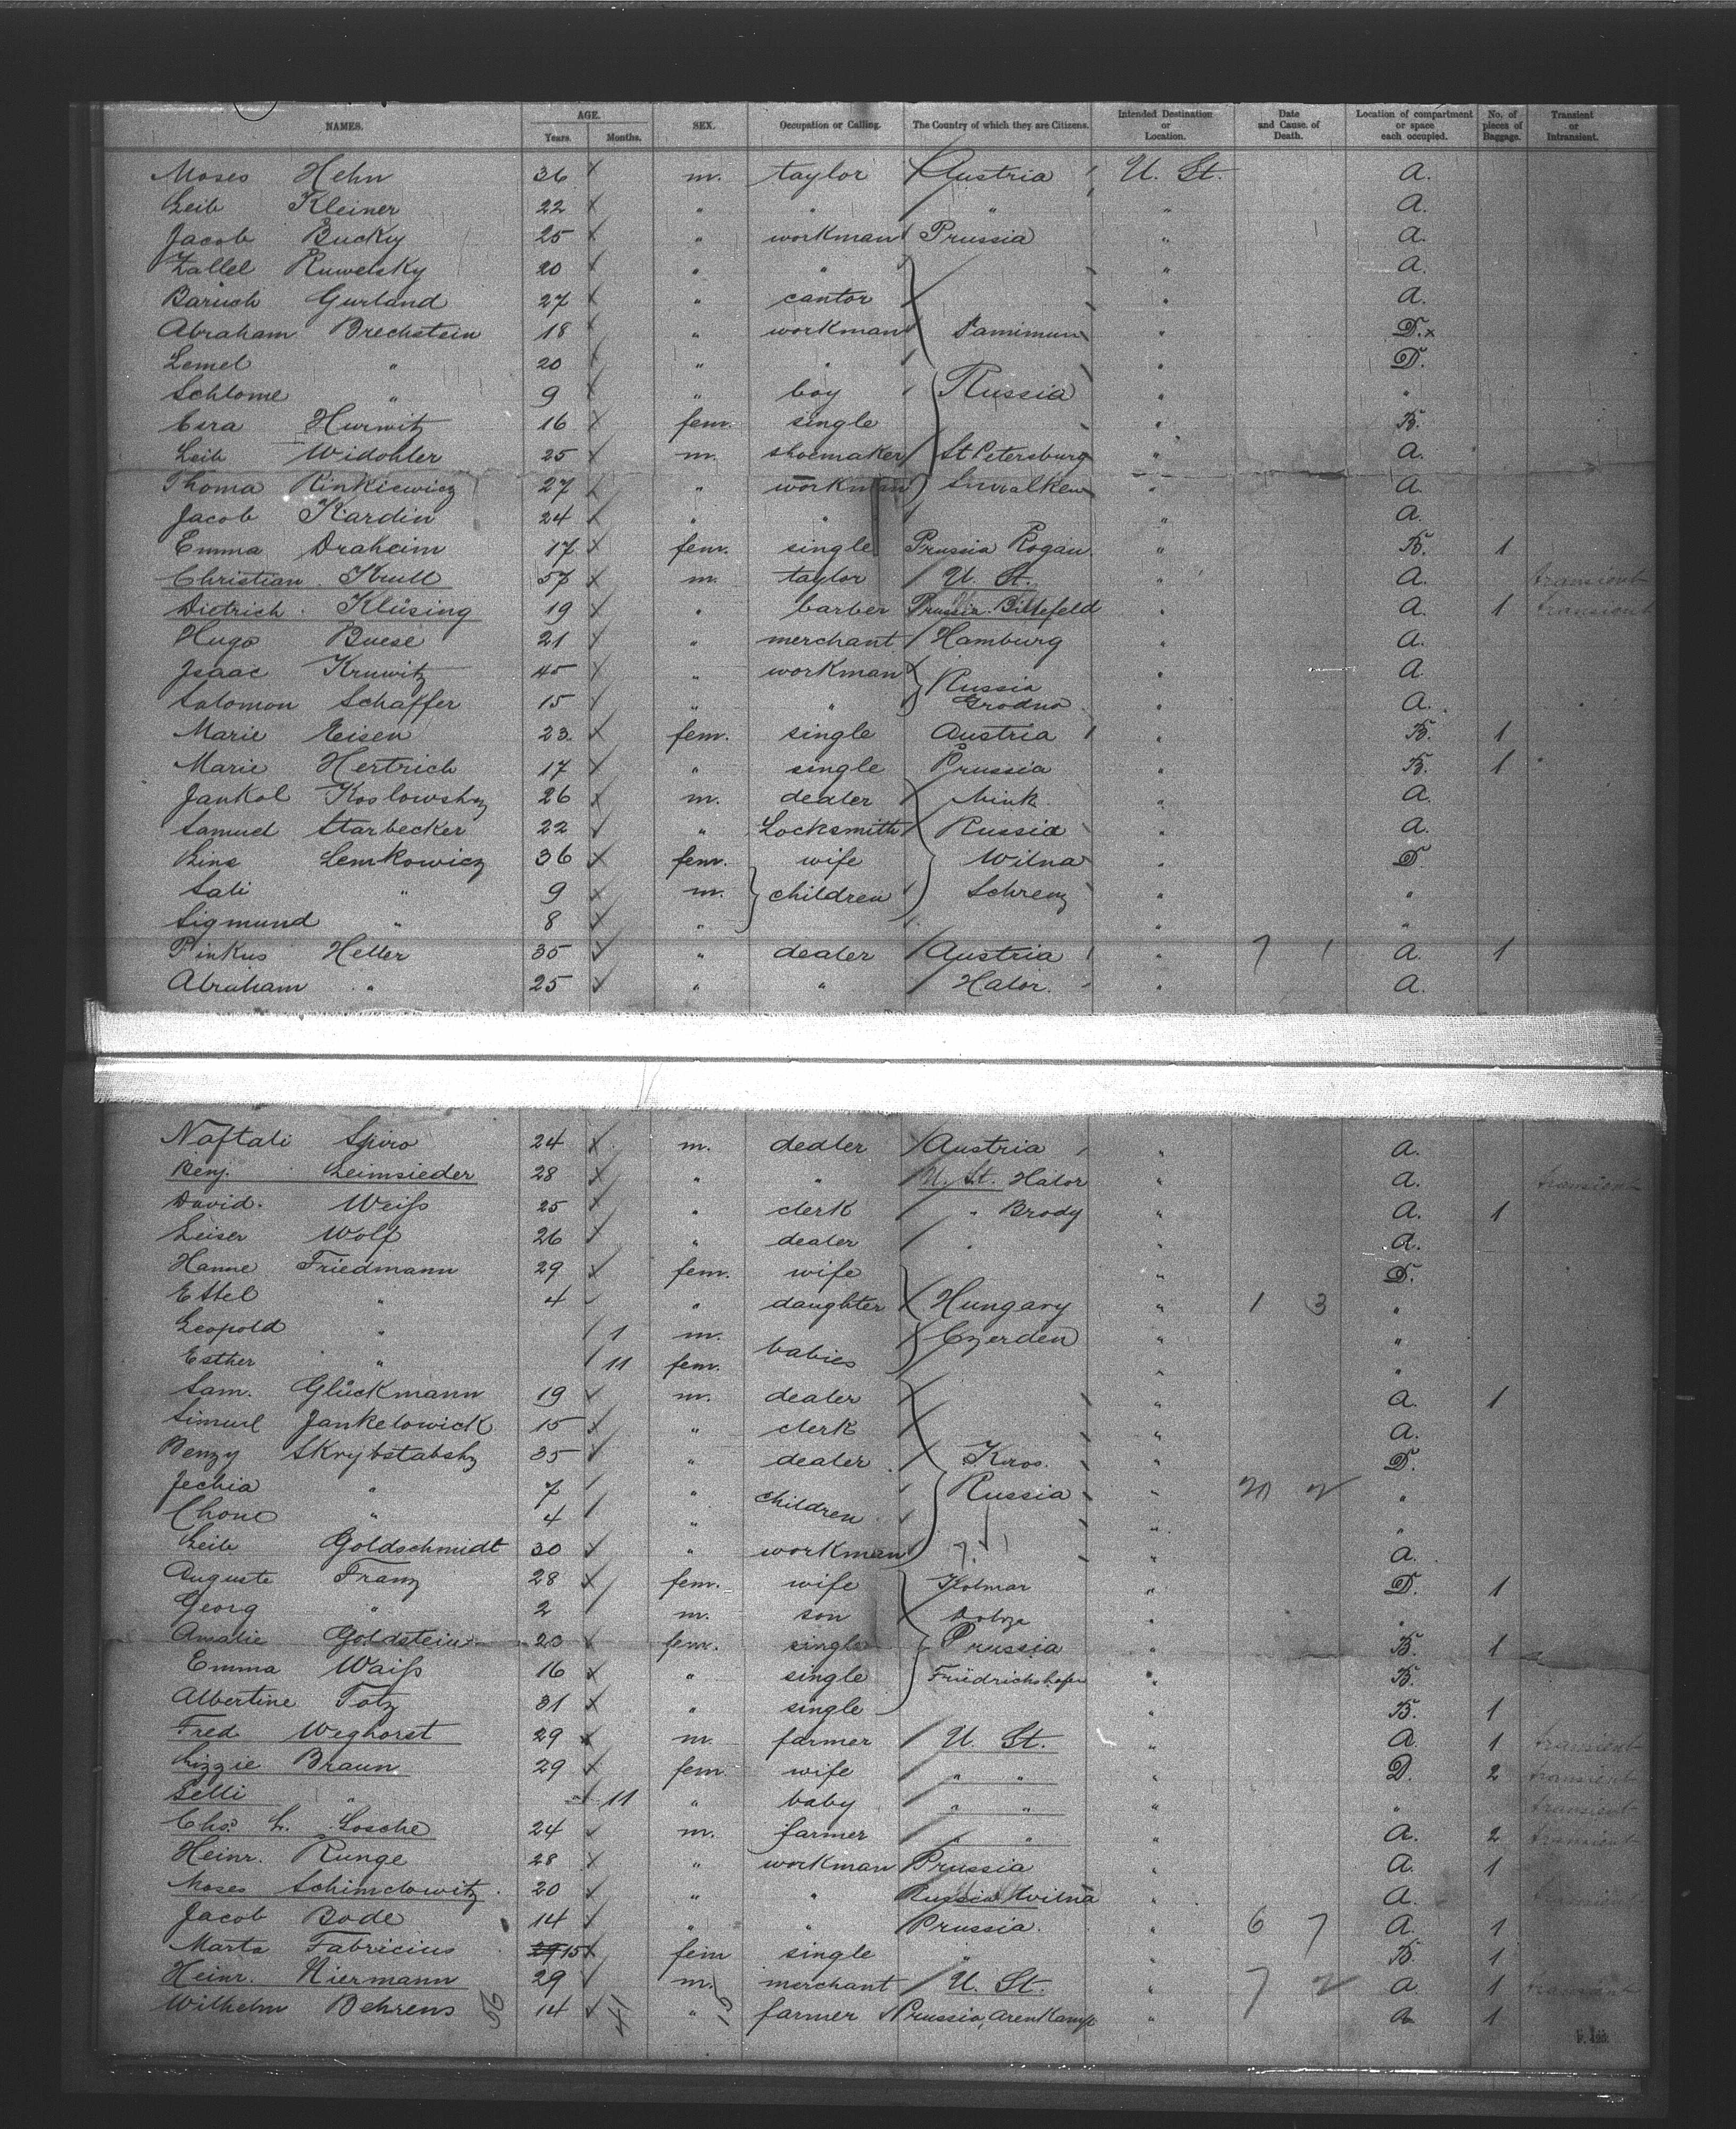 NAMES. AGE. Years. Months. SEX. Occupation or Calling. The Country of which they are Citizens. Intended Destination or Location. Date and Cause of Death. Location of compartment or space each occupied. No. of pieces of Baggage. Transient or Intransient.
Moses Hehn 36 m. taylor Austria U. St. A.
Leib Kleiner 22 " " " " A.
Jacob Bucky 25 " workman Prussia " A.
Zallel Ruwelsky 20 " " " A.
Baruch Gurland 27 " cantor " A.
Abraham Brechstein 18 " workman " D.
Lemel " 20 " " " D.
Schlome " 9 " boy Russia " "
Esra Hurwitz 16 fem. single " B.
Leib Widohler 25 m. shoemaker St Petersburg " A.
Thoma Rinkiewicz 27 " workman " A.
Jacob Kardin 24 " " " A.
Emma Draheim 17 fem. single Prussia Rogau " B. 1
Christian Krull 57 m. taylor U. St. " A. transient
Dietrich Klüsing 19 " barber Prussia Billefeld " A. 1 transient
Hugo Buese 21 " merchant Hamburg " A.
Isaac Kruwitz 45 " workman Russia " A.
Salomon Schaffer 15 " " Grodno " A.
Marie Eisen 23 fem. single Austria " B. 1
Marie Hertrich 17 " single Prussia " B. 1
Jankol Koslowsky 26 m. dealer Mink " A.
Samuel Starbecker 22 " Locksmith Russia " A.
Lina Lemkowicz 36 fem. wife Wilna " D
Sali " 9 m. children Schrenz " "
Sigmund " 8 " " "
Pinkus Heller 35 " dealer Austria " 7 1 A. 1
Abraham " 25 " " Halor. " A.
Naftali Spiro 24 m. dealer Austria " A.
Benj. Leimsieder 28 " " U. St. Halor " A. transient
David Weiss 25 " clerk " Brody " A. 1
Leiser Wolf 26 " dealer " " A.
Hanne Friedmann 29 fem. wife " D.
Ettel " 4 " daughter Hungary " 1 3 "
Leopold " 1 m. babies Czerden " "
Esther " 11 fem. " "
Sam. Glückmann 19 m. dealer " A. 1
Simuel Jankelowick 15 " clerk " A.
Benzy Skrybstabsky 35 " dealer " D.
Jechia " 7 " children Russia " "
Chone " 4 " " "
Leib Goldschmidt 30 " workman " A.
Auguste Franz 28 fem. wife Kolmar " D. 1
Georg " 2 m. son " "
Amalie Goldstein 20 fem. single Prussia " B. 1
Emma Waiss 16 " single Friedrichshofen " B.
Albertine Totz 31 " single " B. 1
Fred Weghorst 29 m. farmer U. St. " A. 1 transient
Lizzie Braun 29 fem wife " " " D. 2 transient
Selli " 11 " baby " " " " transient
Chs. L. Losche 24 m. farmer " " " A. 2 transient
Heinr. Runge 28 " workman Prussia " A. 1
Moses Schimelowitz 20 " " Russia Wilna " A. transient
Jacob Bode 14 " " Prussia. " 6 7 A. 1
Marta Fabricius 15 fem single " " B. 1
Heinr. Niermann 29 m. merchant U. St. " 7 2 A. 1 transient
Wilhelm Behrens 14 " farmer Prussia, Arenkamp " A 1
56 41 15